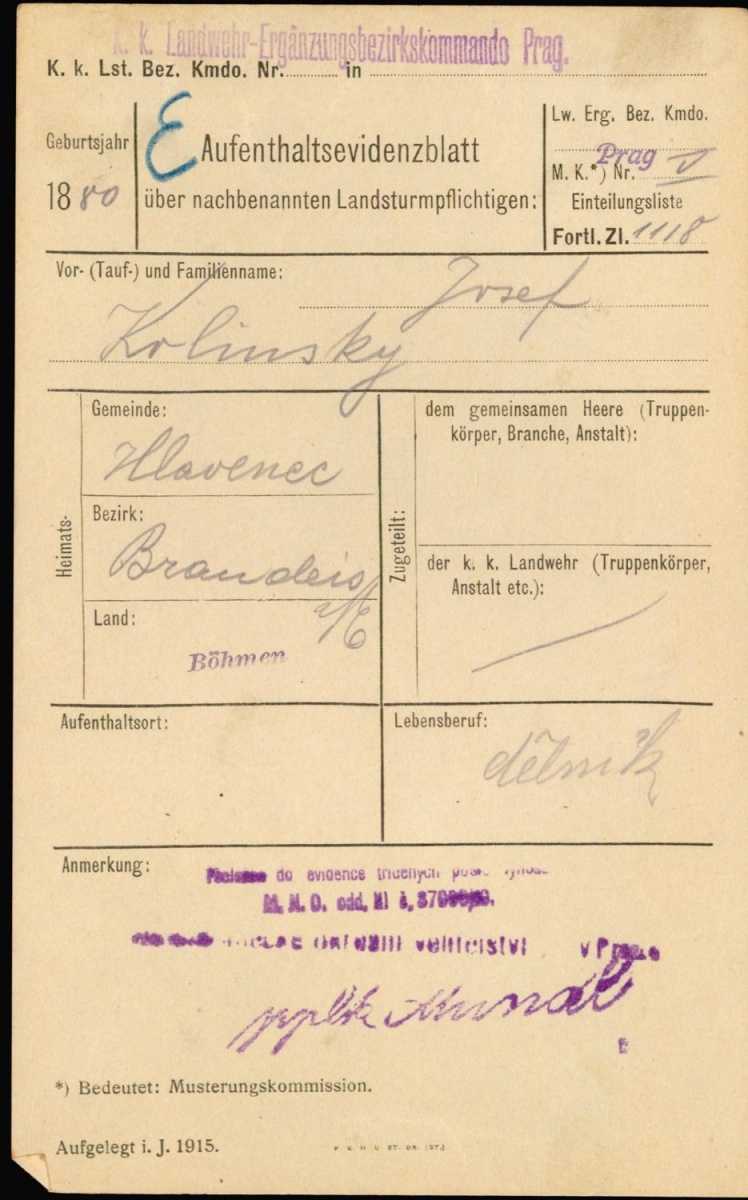 K. k. Landwehr-Ergänzungsbezirkskommando Prag.
K. k. Lst. Bez. Kmdo. Nr. in
Geburtsjahr
1880
E
Aufenthaltsevidenzblatt
über nachbenannten Landsturmpflichtigen:
Lw. Erg. Bez. Kmdo.
Prag
M. K.*) Nr. V
Einteilungsliste
Fortl. Zl. 1118
Vor- (Tauf-) und Familienname:
Josef
Kolinsky
Heimats-
Gemeinde:
Hlavenec
Bezirk:
Brandeis
a/E
Land:
Böhmen
Zugeteilt:
dem gemeinsamen Heere (Truppen-
körper, Branche, Anstalt):
der k. k. Landwehr (Truppenkörper,
Anstalt etc.):
Aufenthaltsort:
Lebensberuf:
dělník
Anmerkung:
do evidence tříděných
M. N. O. odd.
velitelství v
pplk
*) Bedeutet: Musterungskommission.
Aufgelegt i. J. 1915.